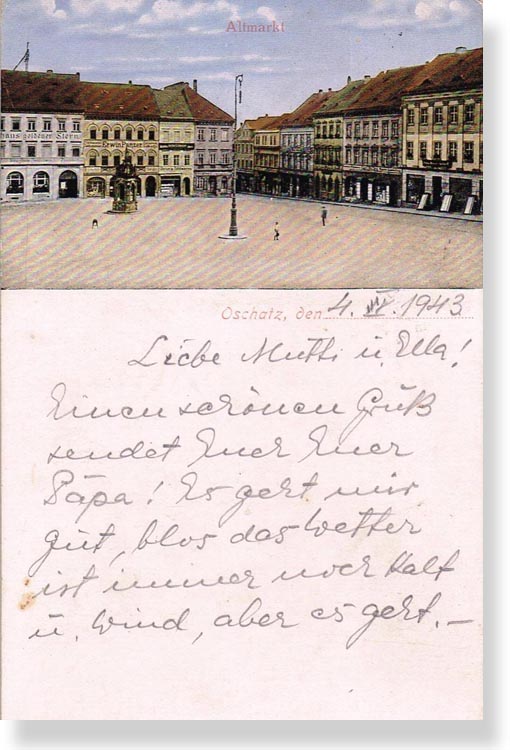 Altmarkt
haus goldener Stern
Erwin Panzer
Oschatz, den 4. IV. 1943
Liebe Mutti u. Ella!
Einen schönen Gruß
sendet Euch Euer
Papa! Es geht mir
gut, blos das Wetter
ist immer noch Kalt
u. Wind, aber es geht. —